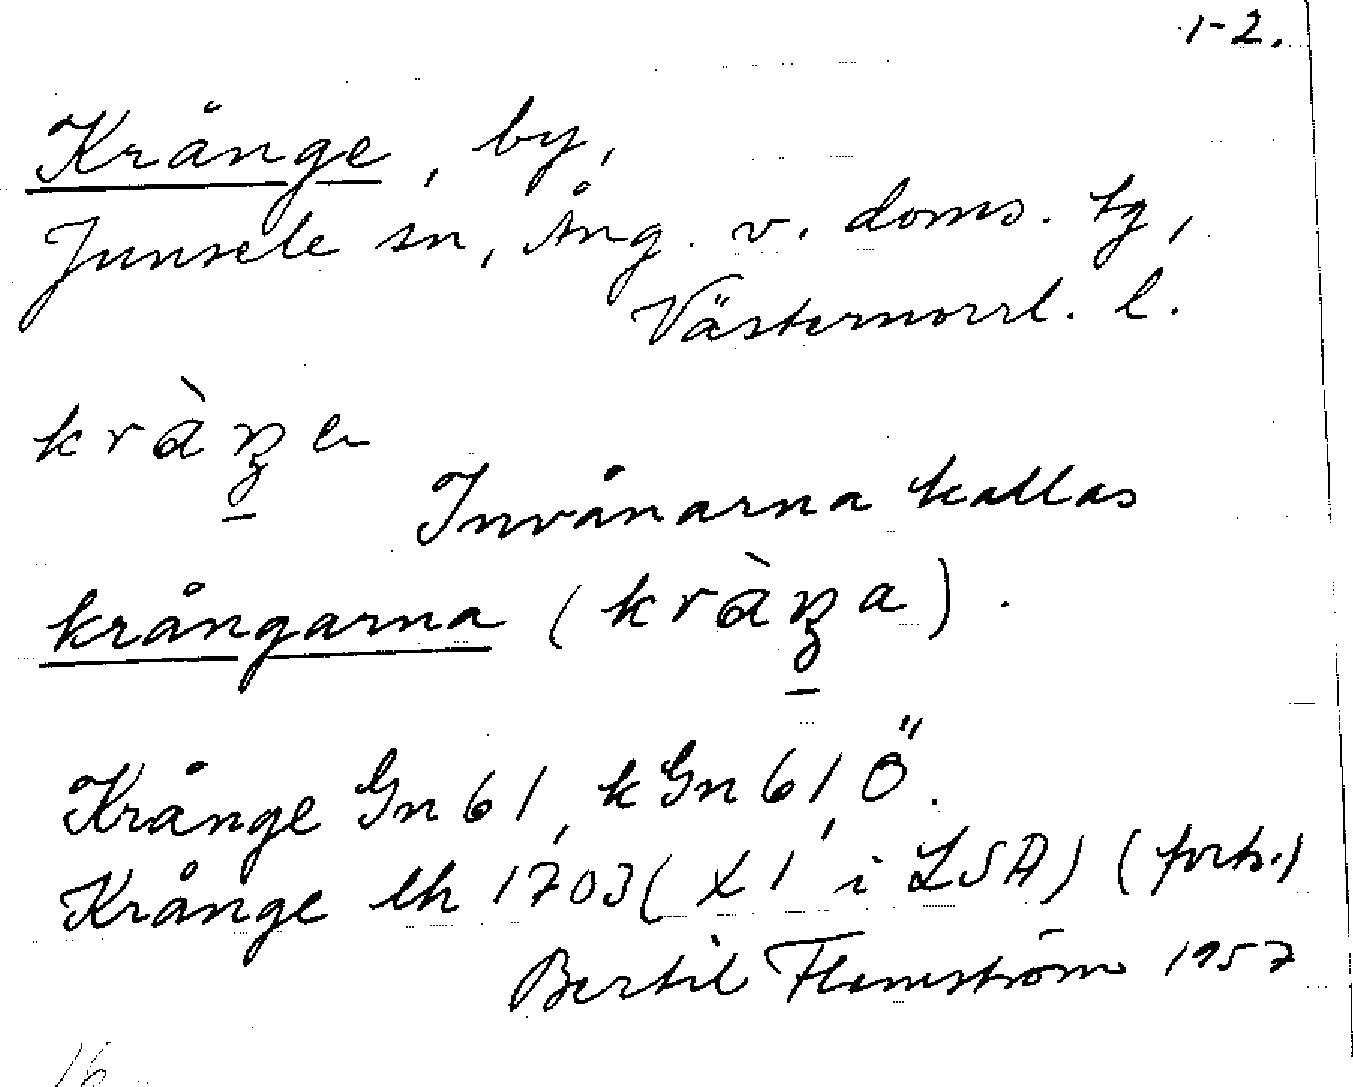 1-2.
Krånge, by,
Junsele sn, Ång. v. doms. tg,
Västernorrl. l.
kràŋe
Invånarna kallas
krångarna (kràŋa).
Krånge Gn 61, kGn 61, Ö.
Krånge lh 1703 (X1 i LSA) (forts.)
Bertil Flemström 1957
16